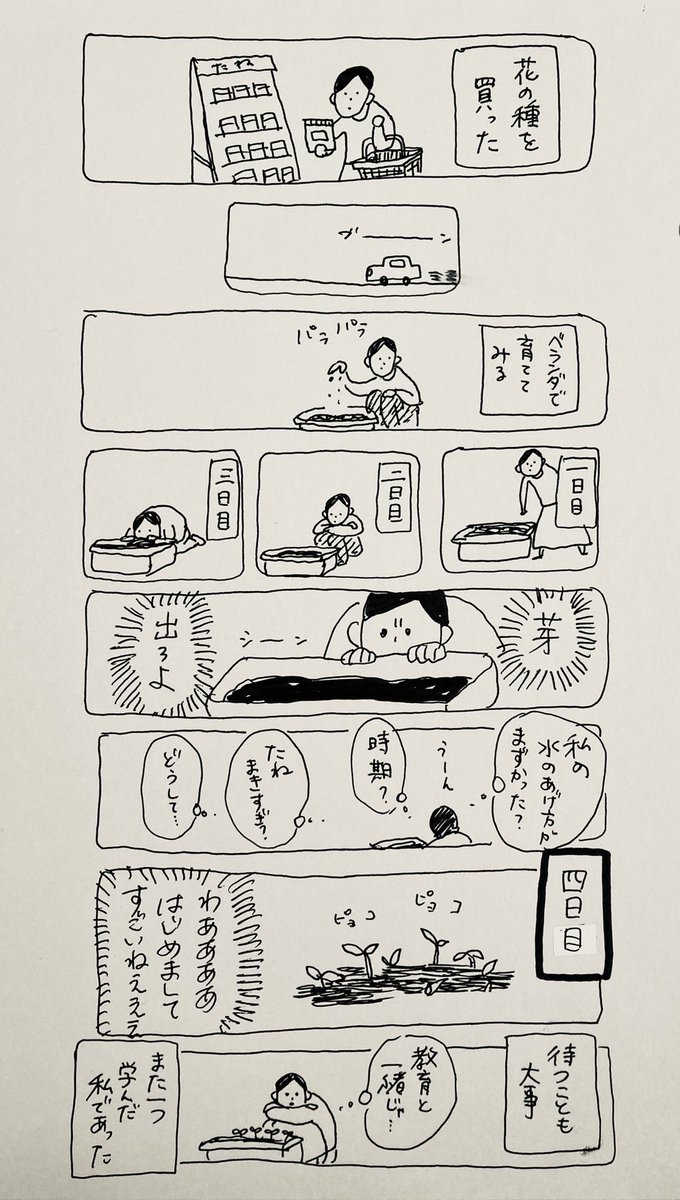 花の種を
買った
たね
ブーーーン
ベランダで
育てて
みる
パラパラ
一日目
二日目
三日目
芽
シーン
出ろよ
私の
水のあげ方が
まずかった?
うーん
時期?
たね
まきすぎ?
どうして…
四日目
ピョコ
ピョコ
わああああ
はじめまして
すごいねえええ
待つことも
大事
教育と
一緒じゃ…
また一つ
学んだ
私であった